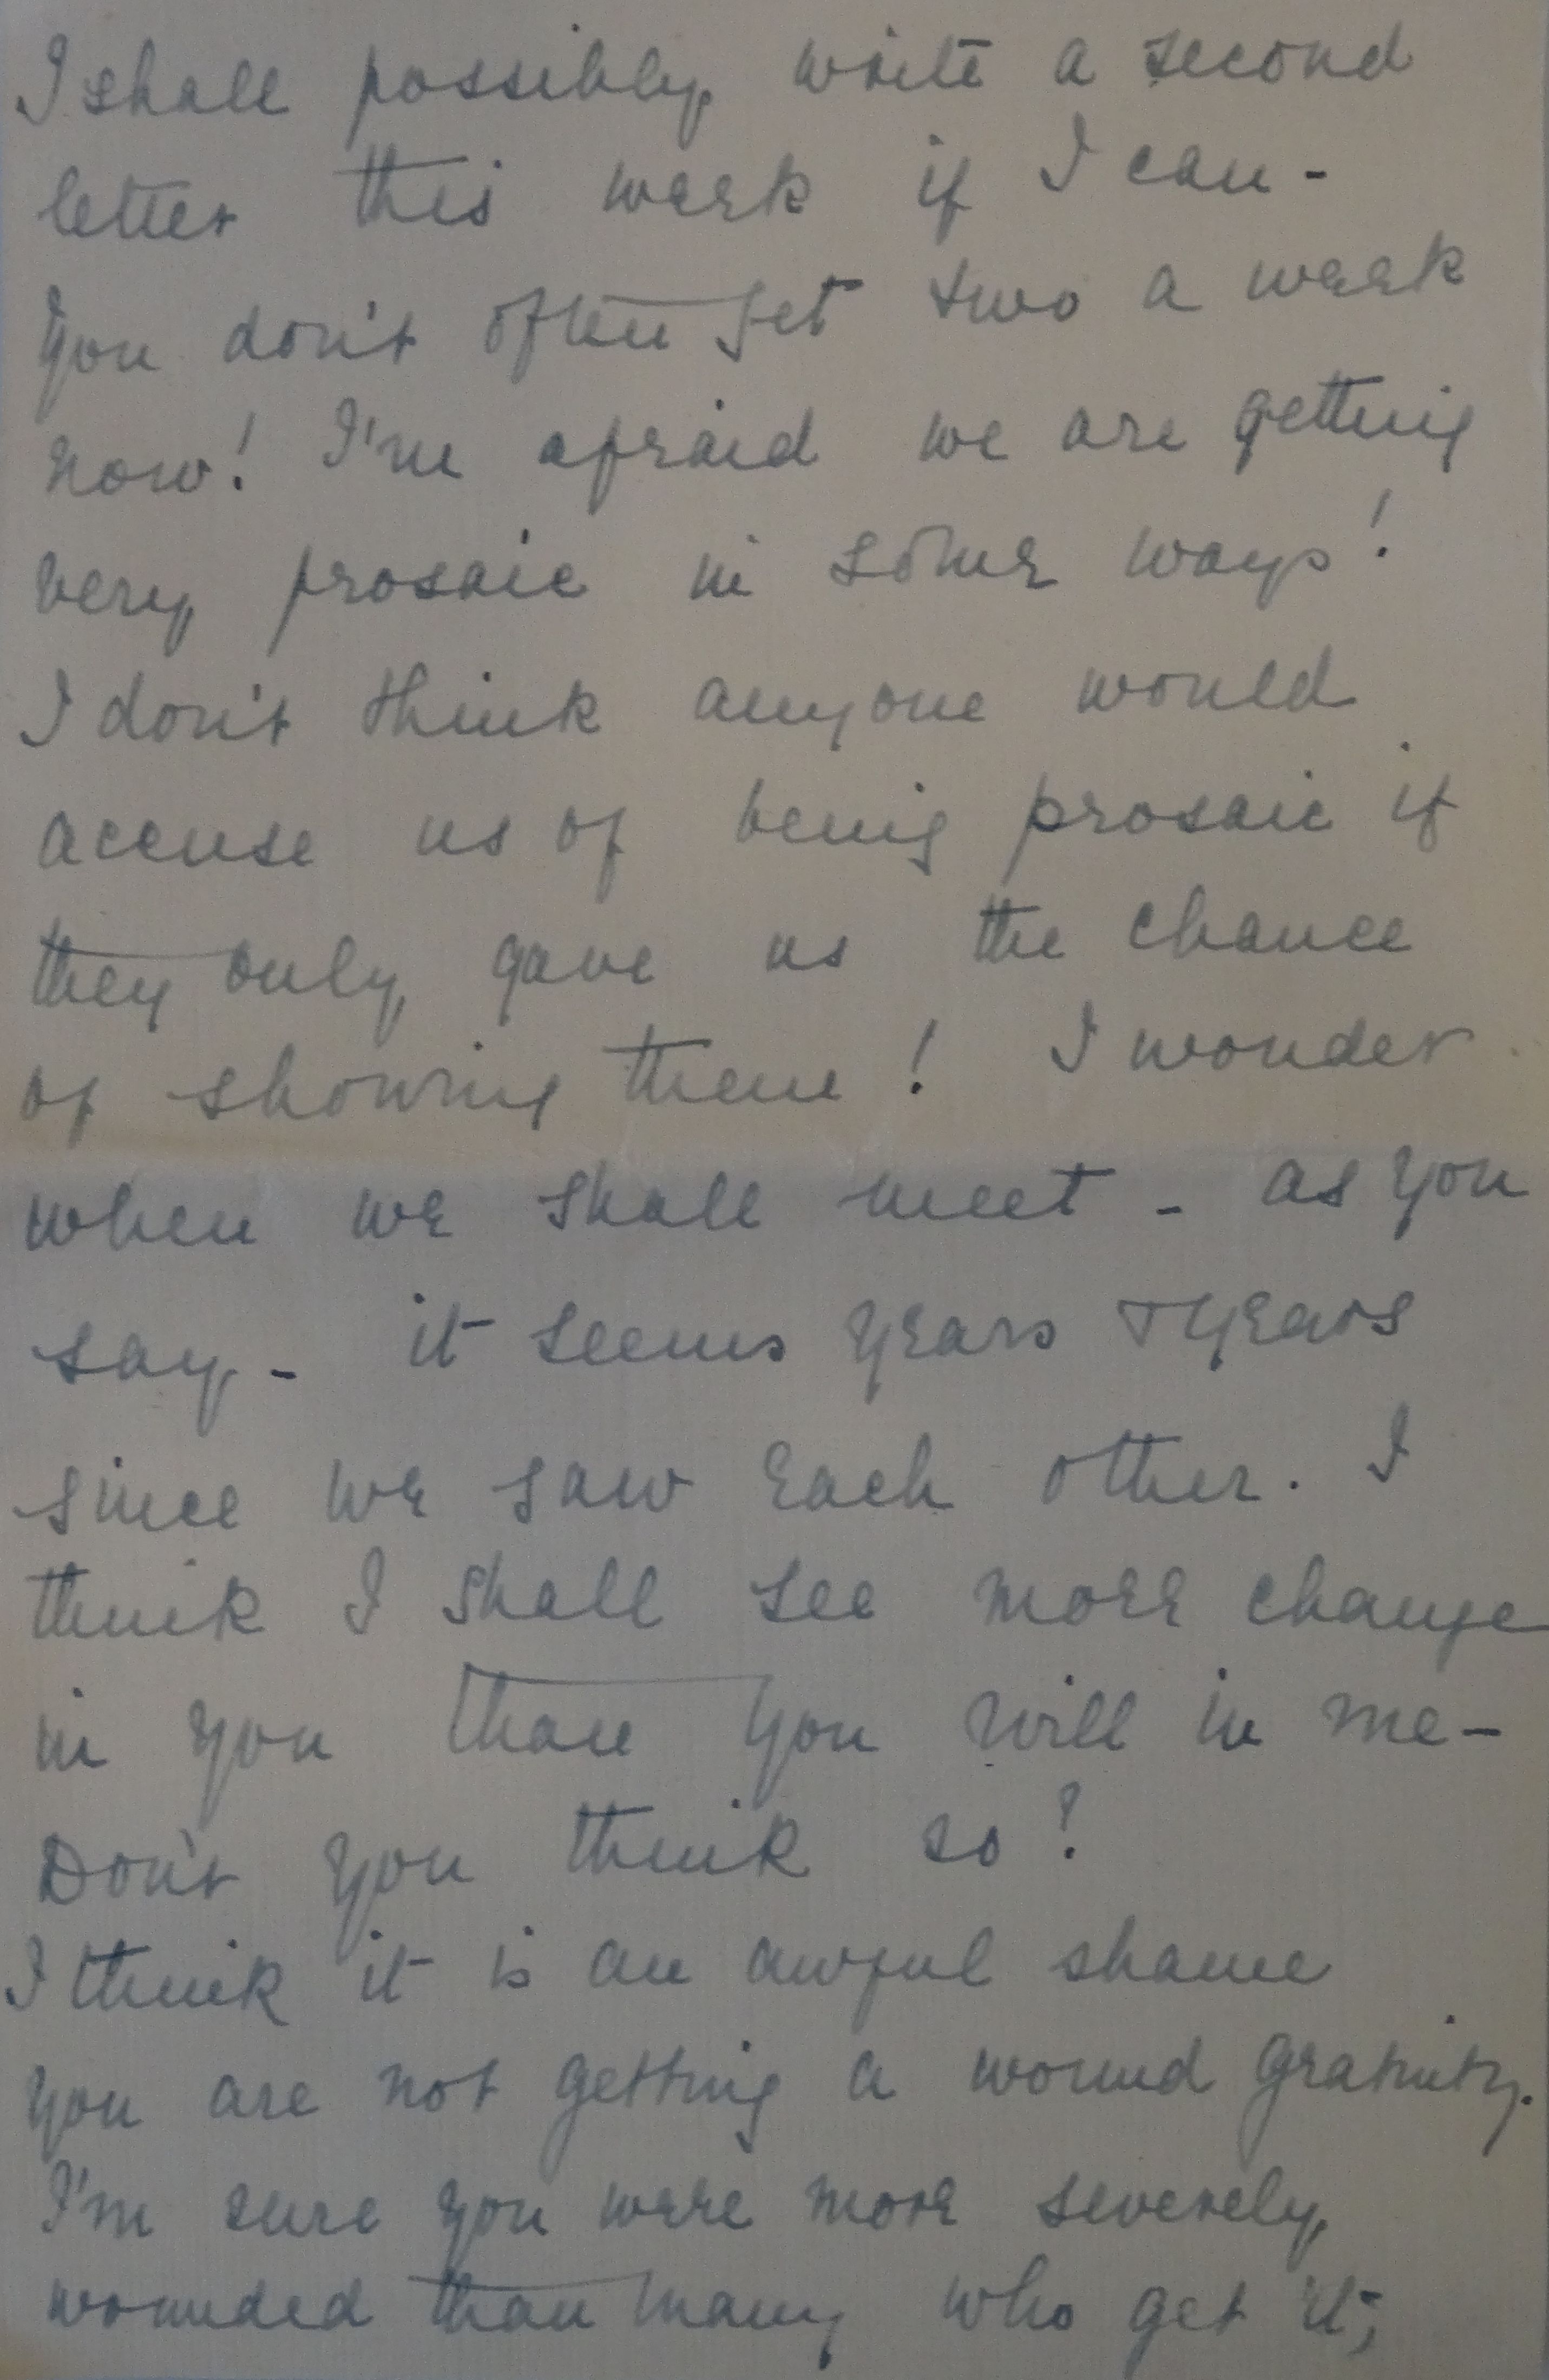 I shall possibly write a second
letter this week if I can -
You don't often get two a week
now! I'm afraid we are getting
very prosaic in some ways!
I don't think anyone would
accuse us of being prosaic if
they only gave us the chance
of showing them! I wonder
when we shall meet - as you
say - it seems years & years
since we saw each other. I
think I shall see more change
in you than you will in me -
Don't you think so?
I think it is an awful shame
you are not getting a wound gratuity.
I'm sure you were more severely
wounded than many who get it;